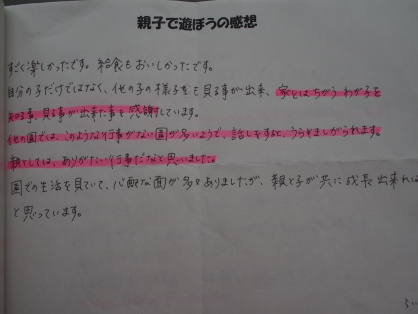 親子で遊ぼうの感想
すごく楽しかったです。給食もおいしかったです。
自分の子だけではなく、他の子の様子をも見る事が出来、家とはちがうわが子を
知る事、見る事が出来た事を感謝しています。
他の園では、このような行事がない園が多いようで、話しをすると、うらやましがられます。
親としては、ありがたい行事だなと思いました。
園での生活を見ていて、心配な面が多々ありましたが、親と子が共に成長出来れば
と思っています。